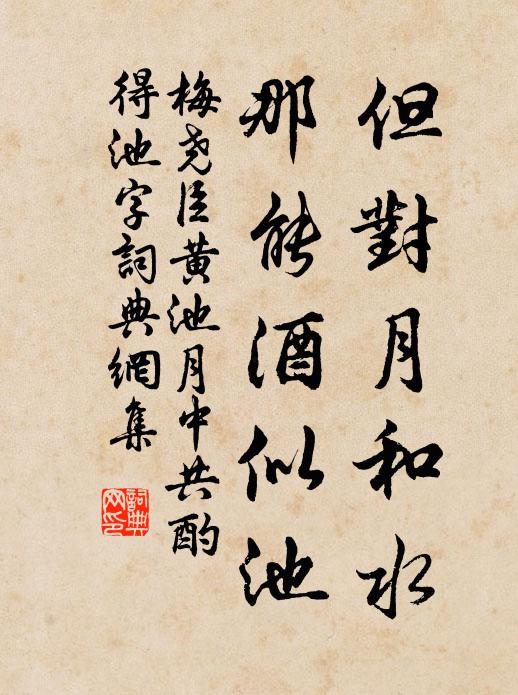 但對月和水
那能酒似池
梅尧臣黄池月中共酌
得池字詞典網集
詞典
网印